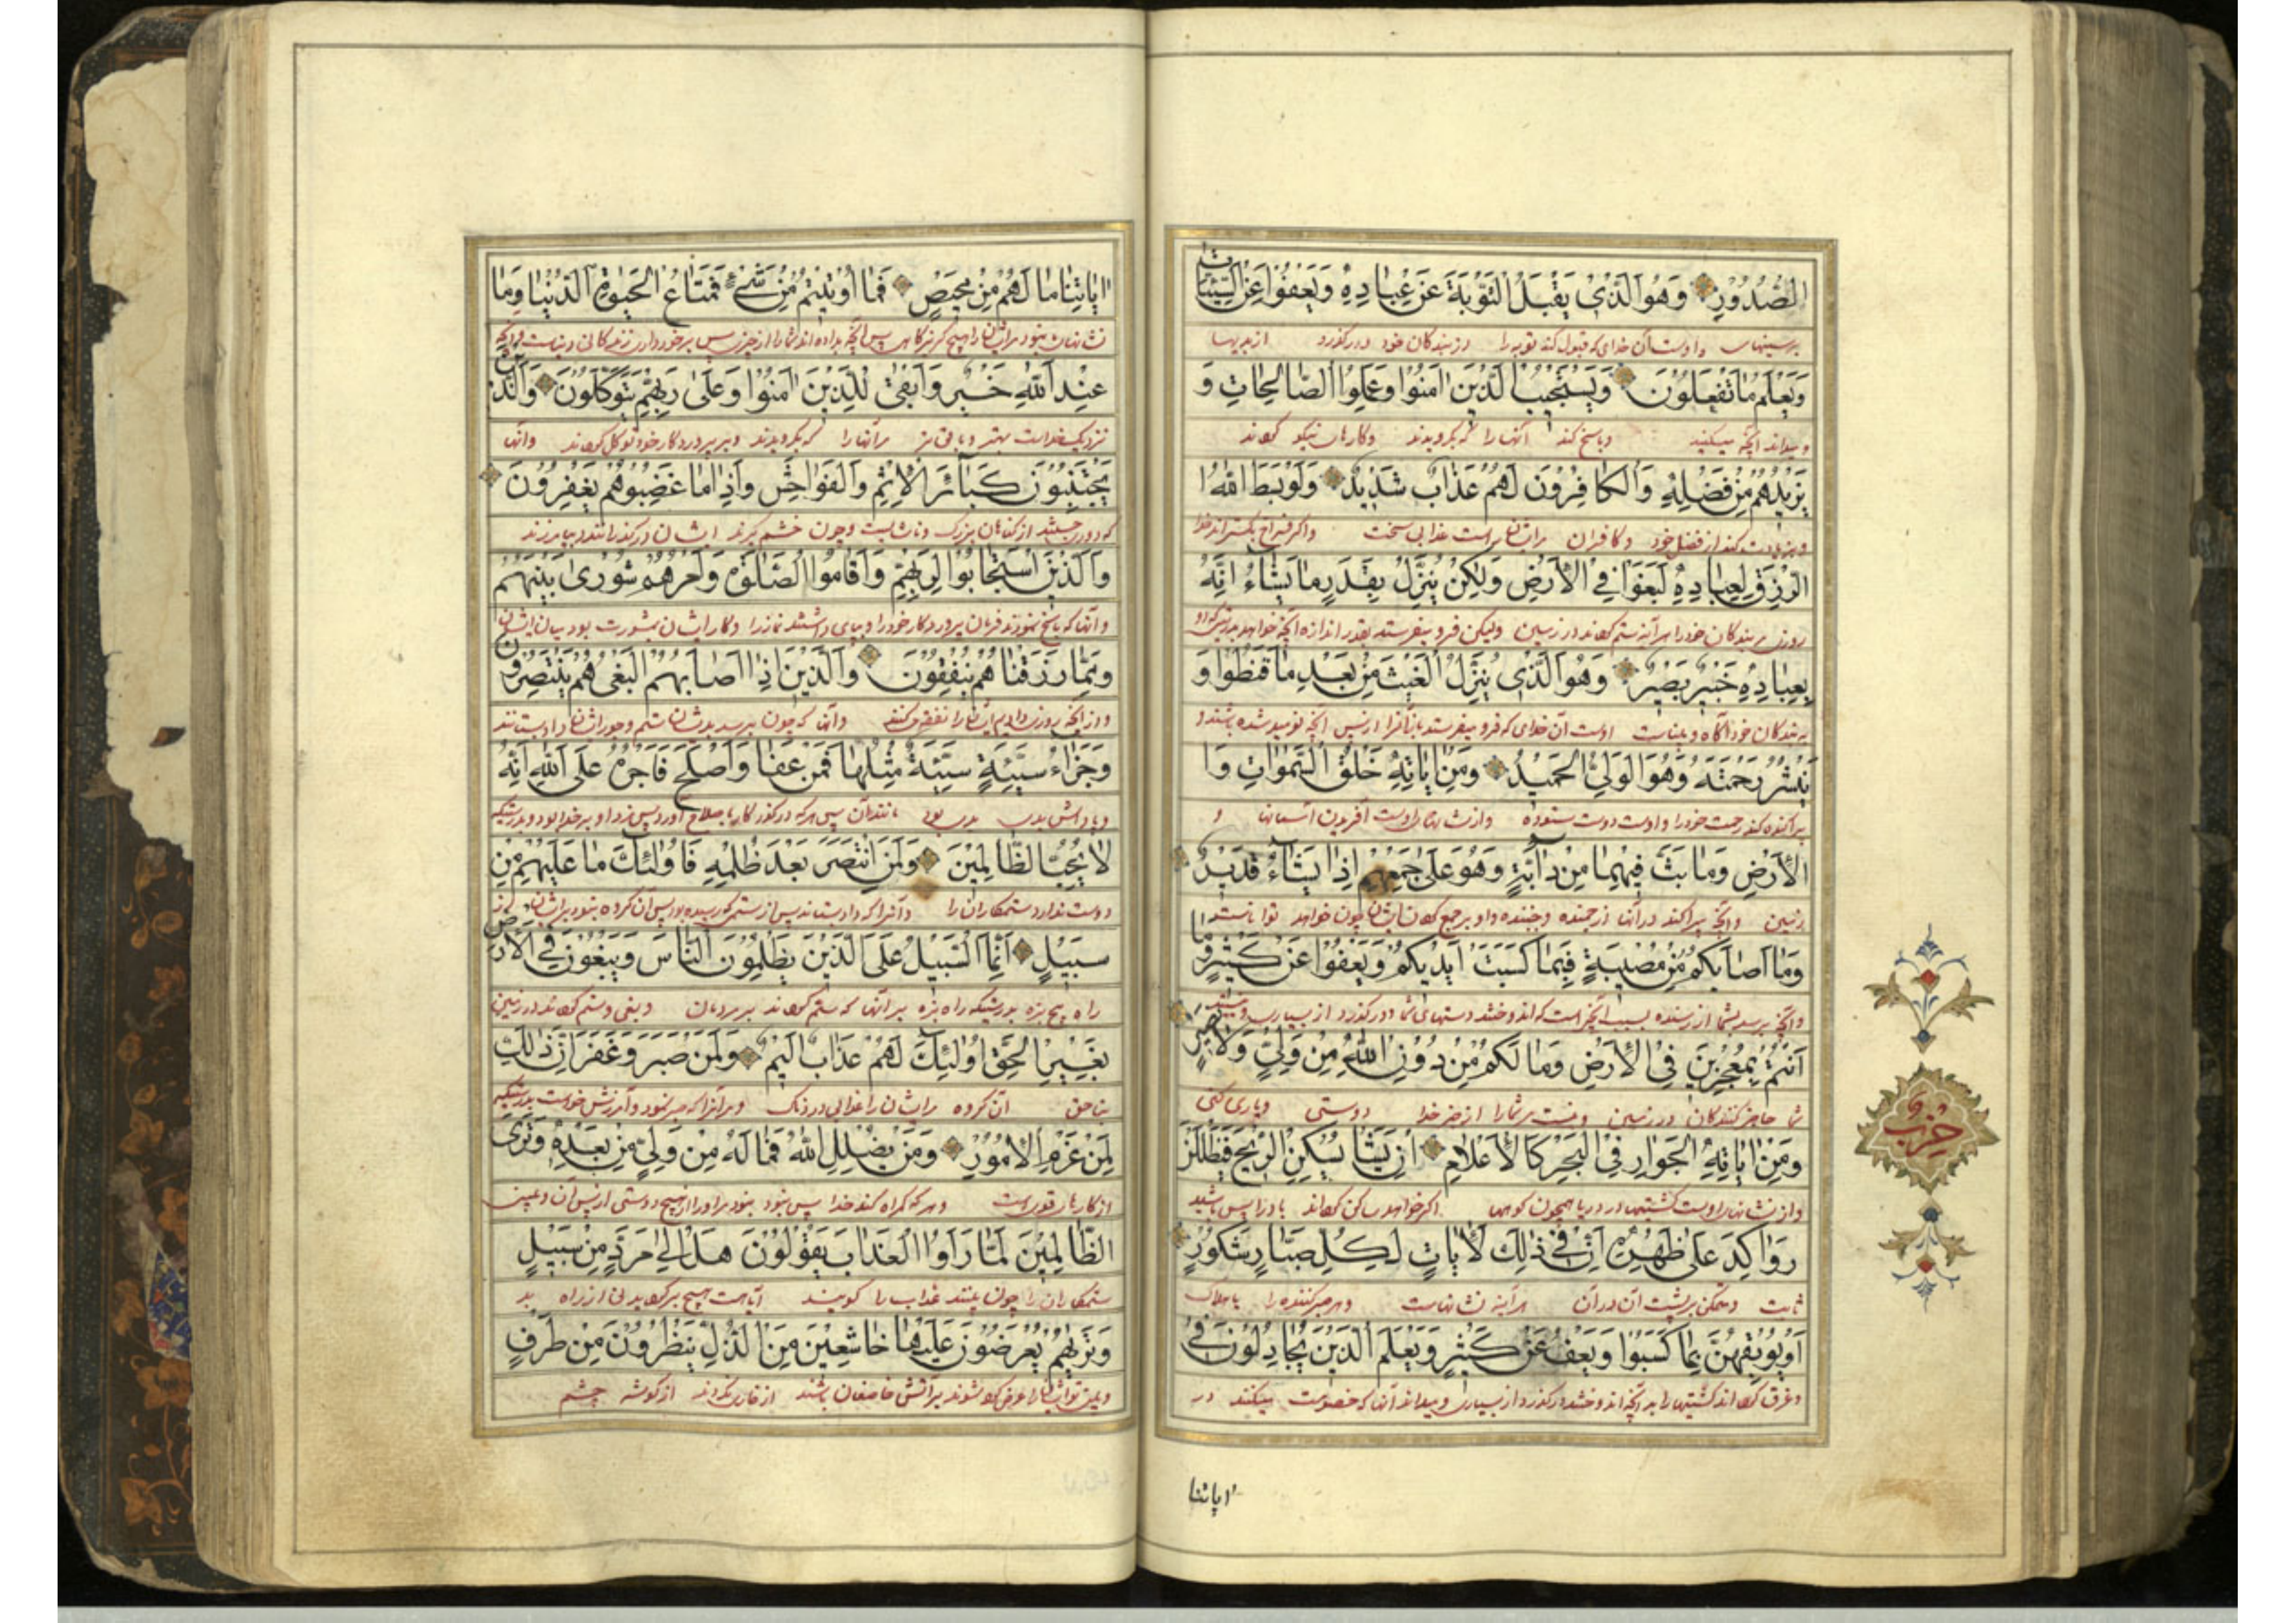 الصُّدُورِ وَهُوَ الَّذِی یَقْبَلُ التَّوْبَةَ عَنْ عِبَادِهِ وَیَعْفُوا عَنِ السَّیِّئَاتِ
بر سینهاست و اوست آن خدای که قبول کند توبه را از بندکان خود و درکذرد از بدیها
وَیَعْلَمُ مَا تَفْعَلُونَ وَیَسْتَجِیبُ الَّذِینَ اٰمَنُوا وَعَمِلُوا الصَّالِحَاتِ وَ
و میداند آنچه میکنید و پاسخ کند آنها را که بکرویدند و کارهای نیکو
یَزِیدُهُمْ مِنْ فَضْلِهِ وَالْكَافِرُونَ لَهُمْ عَذَابٌ شَدِیدٌ وَلَوْ بَسَطَ اللّٰهُ ا
کند از فضل خود و کافران مر ایشانراست عذابی سخت و اکر فراخ بکستراند خدا
لرِّزْقَ لِعِبَادِهِ لَبَغَوْا فِی الْاَرْضِ وَلٰكِنْ یُنَزِّلُ بِقَدَرٍ مَا یَشَاءُ اِنَّهُ
روزی بر بندکان خود را هر آینه ستم کنند در زمین ولیکن فرو میفرستد بقدر اندازه آنچه خواهد بدرستیکه او
بِعِبَادِهِ خَبِیرٌ بَصِیرٌ وَهُوَ الَّذِی یُنَزِّلُ الْغَیْثَ مِنْ بَعْدِ مَا قَنَطُوا وَ
به بندکان خود آکاه و بیناست اوست آن خدای که فرو میفرستد بارانرا از پس آنچه نومید شده باشند و
یَنْشُرُ رَحْمَتَهُ وَهُوَ الْوَلِیُّ الْحَمِیدُ وَمِنْ اٰیَاتِهِ خَلْقُ السَّمٰوَاتِ وَا
پراکنده کند رحمت خود را و اوست دوست ستوده و از نشانهای اوست آفریدن آسمانها و
لْاَرْضِ وَمَا بَثَّ فِیهِمَا مِنْ دَابَّةٍ وَهُوَ عَلٰی جَمْعِهِمْ اِذَا یَشَاءُ قَدِیرٌ
زمین و آنچه پراکند در آنها از جنبنده و او بر جمع ایشان چون خواهد تواناست
وَمَا اَصَابَكُمْ مِنْ مُصِیبَةٍ فَبِمَا كَسَبَتْ اَیْدِیكُمْ وَیَعْفُوا عَنْ كَثِیرٍ وَمَا
و آنچه برسد بشما از رسنده بسبب آنچیز است که اندوختند دستهای شما و درکذرد از بسیاری
اَنْتُمْ بِمُعْجِزِینَ فِی الْاَرْضِ وَمَا لَكُمْ مِنْ دُونِ اللّٰهِ مِنْ وَلِیٍّ وَلَا نَصِیرٍ
شما عاجز کنندکان در زمین و نیست مر شما را از جز خدا دوستی و یاری کنی
وَمِنْ اٰیَاتِهِ الْجَوَارِ فِی الْبَحْرِ كَالْاَعْلَامِ اِنْ یَشَاْ یُسْكِنِ الرِّیحَ فَیَظْلَلْنَ
و از نشانهای اوست کشتیها در دریا همچون کوهها اکر خواهد ساکن باد را پس باشند
رَوَاكِدَ عَلٰی ظَهْرِهِ اِنَّ فِی ذٰلِكَ لَاٰیَاتٍ لِكُلِّ صَبَّارٍ شَكُورٍ
ثابت بر پشت آن در آن هر آینه نشانهاست هر صبرکننده را یا هلاک
اَوْ یُوبِقْهُنَّ بِمَا كَسَبُوا وَیَعْفُ عَنْ كَثِیرٍ وَیَعْلَمَ الَّذِینَ یُجَادِلُونَ فِی
و غرق کشتیها را به آنچه اندوختند و درکذرد از بسیاری و میداند آنها که خصومت میکنند در
حزب
اٰیاتنا
اٰیَاتِنَا مَا لَهُمْ مِنْ مَحِیصٍ فَمَا اُوتِیتُمْ مِنْ شَیْءٍ فَمَتَاعُ الْحَیٰوةِ الدُّنْیَا وَمَا
نشانهای نبود مر ایشان را هیچ کریزکاهی پس آنچه بداده اند شما را از چیزی پس برخورداری زندکانی دنیاست و آنچه
عِنْدَ اللّٰهِ خَیْرٌ وَاَبْقٰی لِلَّذِینَ اٰمَنُوا وَعَلٰی رَبِّهِمْ یَتَوَكَّلُونَ وَالَّذِینَ
نزدیک خداست بهتر و باقی تر مر آنها را که بکرویدند و بر پروردکار خود توکل کنند و آنها
یَجْتَنِبُونَ كَبَائِرَ الْاِثْمِ وَالْفَوَاحِشَ وَاِذَا مَا غَضِبُوا هُمْ یَغْفِرُونَ
که دوری جستند از کناهان بزرک و ناشایست و چون خشم کیرند ایشان درکذرانند و بیامرزند
وَالَّذِینَ اسْتَجَابُوا لِرَبِّهِمْ وَاَقَامُوا الصَّلٰوةَ وَاَمْرُهُمْ شُورٰی بَیْنَهُمْ
و آنها که پاسخ نمودند فرمان پروردکار خود را و بپای داشتند نماز را و کار ایشان بمشورت بود میان ایشان
وَمِمَّا رَزَقْنَاهُمْ یُنْفِقُونَ وَالَّذِینَ اِذَا اَصَابَهُمُ الْبَغْیُ هُمْ یَنْتَصِرُونَ
و از آنچه روزی دادیم ایشان را نفقه کنند و آنها که چون برسد بدیشان ستم داد بستانند
وَجَزَاءُ سَیِّئَةٍ سَیِّئَةٌ مِثْلُهَا فَمَنْ عَفَا وَاَصْلَحَ فَاَجْرُهُ عَلَی اللّٰهِ اِنَّهُ
و پاداش بدی بدی بود مانند آن پس هر که درکذرد کار باصلاح آورد پس مزد او بر خدا بود بدرستیکه
لَا یُحِبُّ الظَّالِمِینَ وَلَمَنِ انْتَصَرَ بَعْدَ ظُلْمِهِ فَاُولٰئِكَ مَا عَلَیْهِمْ مِنْ
دوست ندارد ستمکاران را و آنرا که داد بستاند پس از ستم که رسیده بود پس آن کروه نبود بر ایشان از
سَبِیلٍ اِنَّمَا السَّبِیلُ عَلَی الَّذِینَ یَظْلِمُونَ النَّاسَ وَیَبْغُونَ فِی الْاَرْضِ
راه هیچ بزه بدرستیکه راه بزه بر آنها که ستم کنند بر مردمان و بغی و ستم کنند در زمین
بِغَیْرِ الْحَقِّ اُولٰئِكَ لَهُمْ عَذَابٌ اَلِیمٌ وَلَمَنْ صَبَرَ وَغَفَرَ اِنَّ ذٰلِكَ
بناحق آن کروه مر ایشان را عذابی دردناک و هر آنرا که صبر نمود و آمرزش خواست بدرستیکه
لَمِنْ عَزْمِ الْاُمُورِ وَمَنْ یُضْلِلِ اللّٰهُ فَمَا لَهُ مِنْ وَلِیٍّ مِنْ بَعْدِهِ وَتَرَی
از کارهای قویست و هر که کمراه کند خدا پس نبود مر او را از هیچ دوستی از پس آن و ببینی
الظَّالِمِینَ لَمَّا رَاَوُا الْعَذَابَ یَقُولُونَ هَلْ اِلٰی مَرَدٍّ مِنْ سَبِیلٍ
ستمکاران را چون بینند عذاب را کویند آیا هست هیچ از راه
وَتَرٰیهُمْ یُعْرَضُونَ عَلَیْهَا خَاشِعِینَ مِنَ الذُّلِّ یَنْظُرُونَ مِنْ طَرْفٍ
و ببینی تو ایشان را عرض شوند بر آتش خاضعان باشند از خواری از کوشه چشم